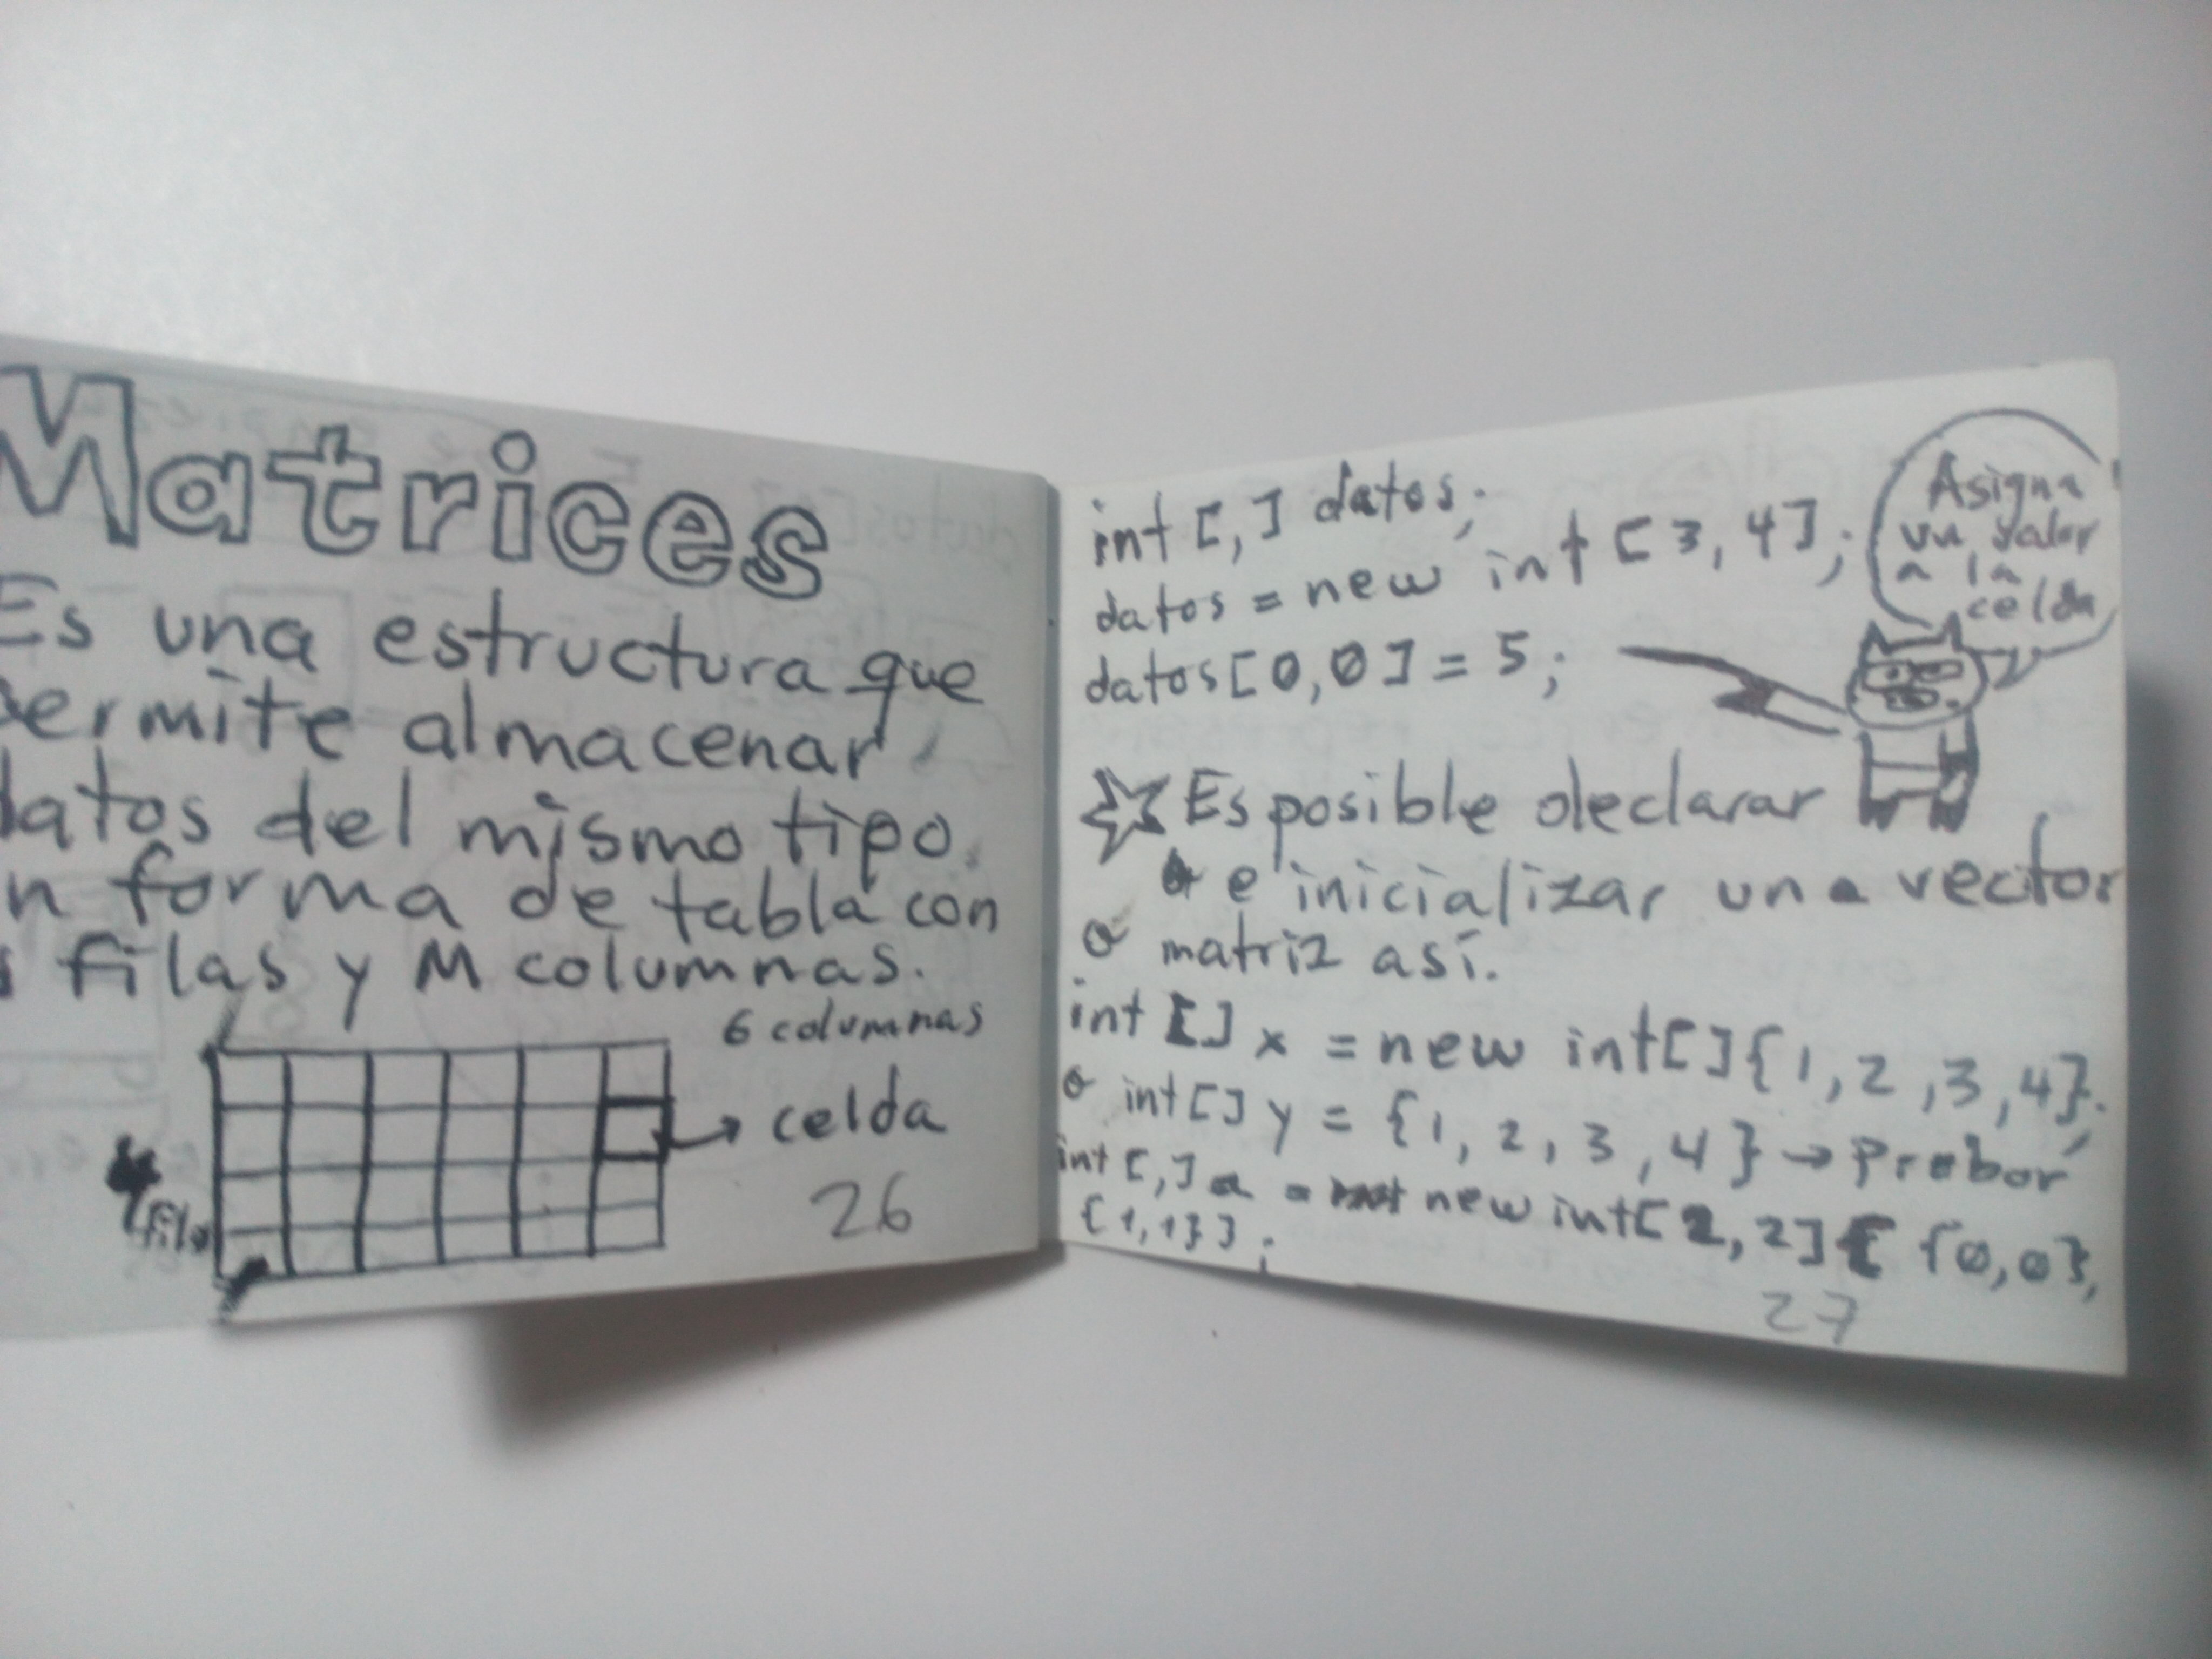 Matrices
Es una estructura que
permite almacenar
datos del mismo tipo
en forma de tabla con
filas y M columnas.
6 columnas
celda
4
fila
26
int [,] datos;
datos = new int [3, 4];
datos[0,0] = 5;
Asigna
un valor
a la
celda
Es posible declarar
e inicializar una vector
o matriz así.
int [] x = new int[]{1, 2, 3, 4}.
o int[] y = {1, 2, 3, 4} → probar
int [,] a = new int[2,2]{ {0,0},
{1,1}};
27